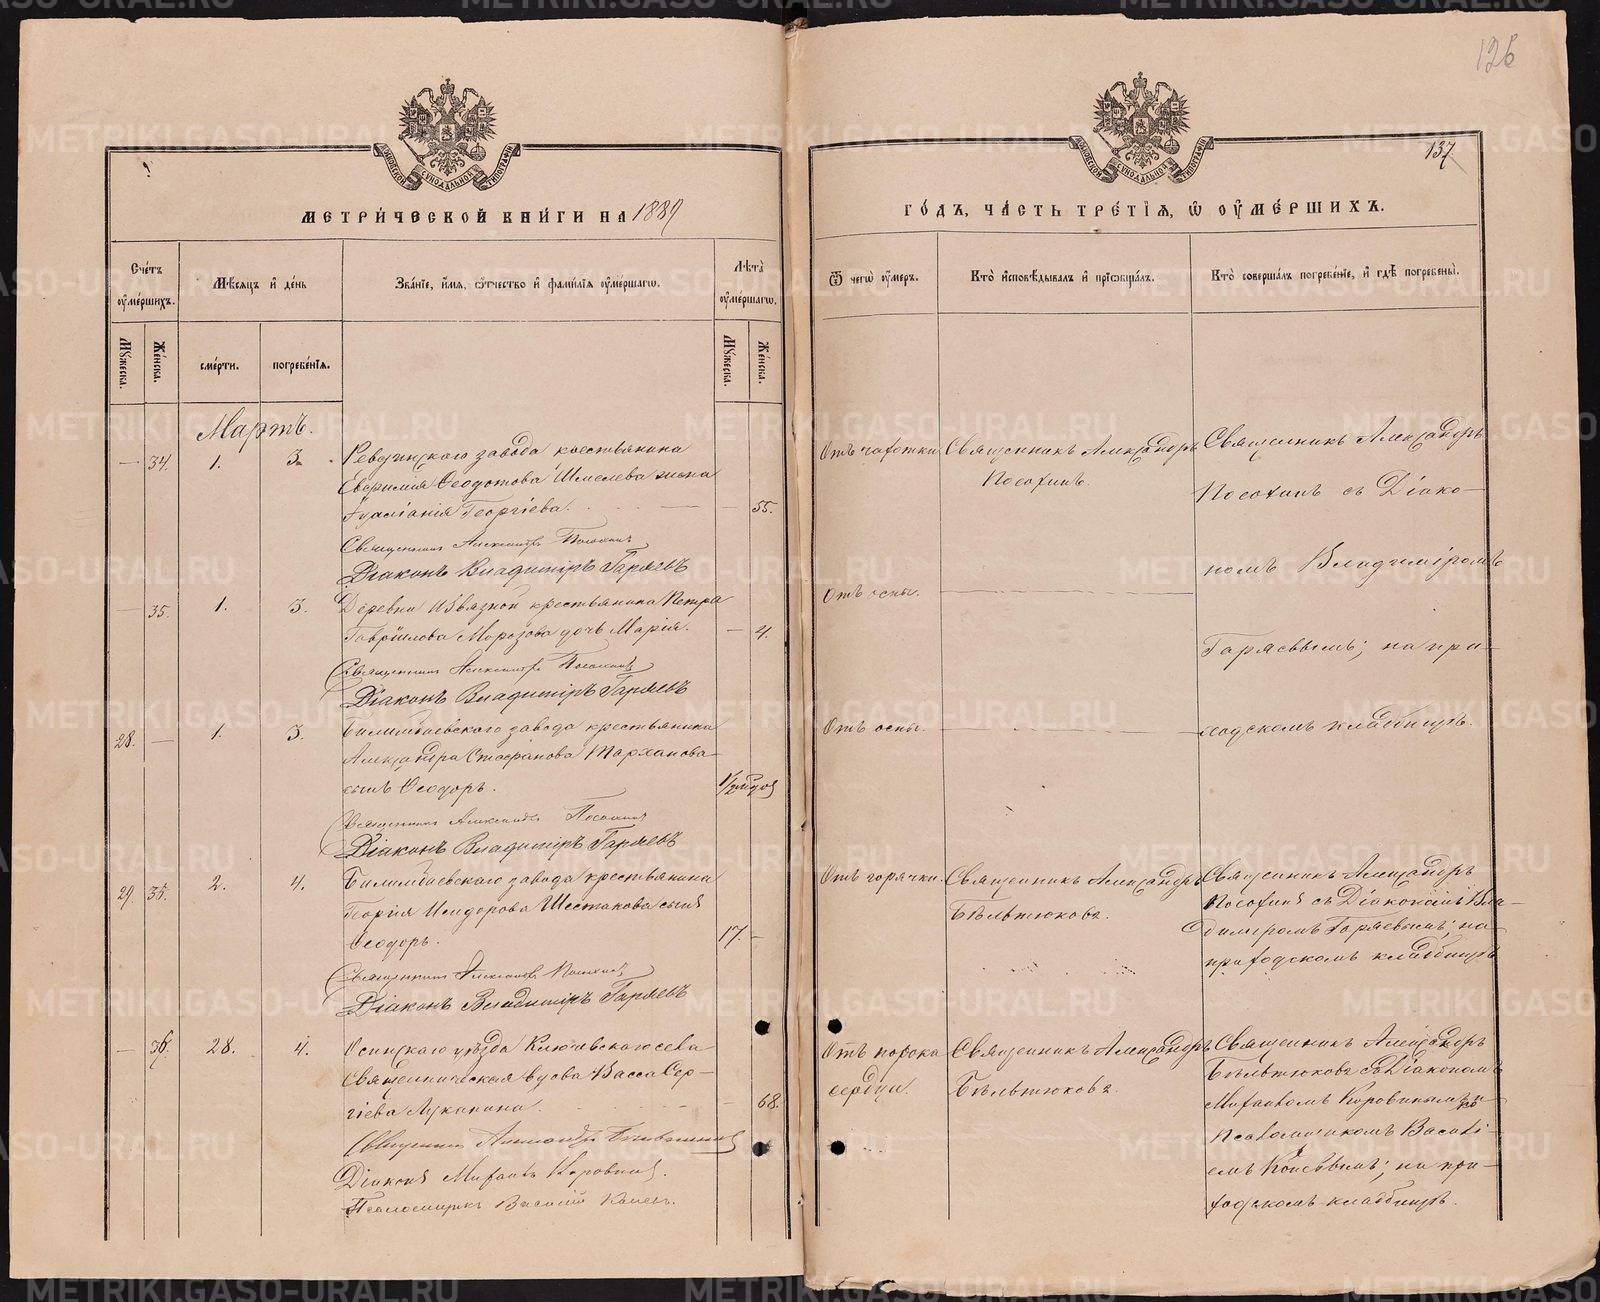 126
137
МЕТРИЧЕСКОЙ КНИГИ НА 1889
ГОДЪ, ЧАСТЬ ТРЕТІЯ, Ѡ ОУМЕРШИХЪ.
Счетъ оумершихъ.
Мѣсяцъ и день
Званіе, имя, отчество и фамилія оумершагѡ.
Лѣта оумершагѡ.
Мужеска.
Женска.
смерти.
погребенія.
Мужеска.
Женска.
Ѿ чегѡ оумеръ.
Кто исповѣдывалъ и пріобщалъ.
Кто совершалъ погребеніе, и гдѣ погребены.
Мартъ.
— 34. 1. 3.
Ревдинскаго завода крестьянина
Евфимія Ѳеодотова Шмелева жена
Георгіева. — 55.
Священникъ Александръ Посохинъ
Діаконъ Владиміръ Гаряевъ
Отъ чахотки
Священникъ Александръ
Посохинъ.
Священникъ Александръ
Посохинъ съ Діако-
номъ Владиміромъ
Гаряевымъ; на при-
ходскомъ кладбищѣ.
— 35. 1. 3.
Деревни Извязной крестьянина Петра
Гавріилова Морозова дочь Марія. — 4.
Священникъ Александръ Посохинъ
Діаконъ Владиміръ Гаряевъ
Отъ оспы.
28. — 1. 3.
Билимбаевскаго завода крестьянина
Александра Стефанова Тарханова
сынъ Ѳеодоръ. 1/2 года
Священникъ Александръ Посохинъ
Діаконъ Владиміръ Гаряевъ
Отъ оспы.
29. 35. 2. 4.
Билимбаевскаго завода крестьянина
Георгія Исидорова Шестакова сынъ
Ѳеодоръ. 17. —
Священникъ Александръ Посохинъ
Діаконъ Владиміръ Гаряевъ
Отъ горячки.
Священникъ Александръ
Бѣльтюковъ.
Священникъ Александръ
Посохинъ съ Діакономъ Вла-
диміромъ Гаряевымъ; на
приходскомъ кладбищѣ
— 36. 28. 4.
Осинскаго уѣзда Ключевскаго села
Священническая вдова Васса Сер-
гіева Луканина. — 68.
Священникъ Александръ Бѣльтюковъ
Діаконъ Коровинъ.
Псаломщикъ Василій
Отъ порока
сердца.
Священникъ Александръ
Бѣльтюковъ.
Священникъ Александръ
Бѣльтюковъ съ Діакономъ
Коровинымъ и
Псаломщикомъ Василі-
емъ на при-
ходскомъ кладбищѣ.
METRIKI.GASO-URAL.RU